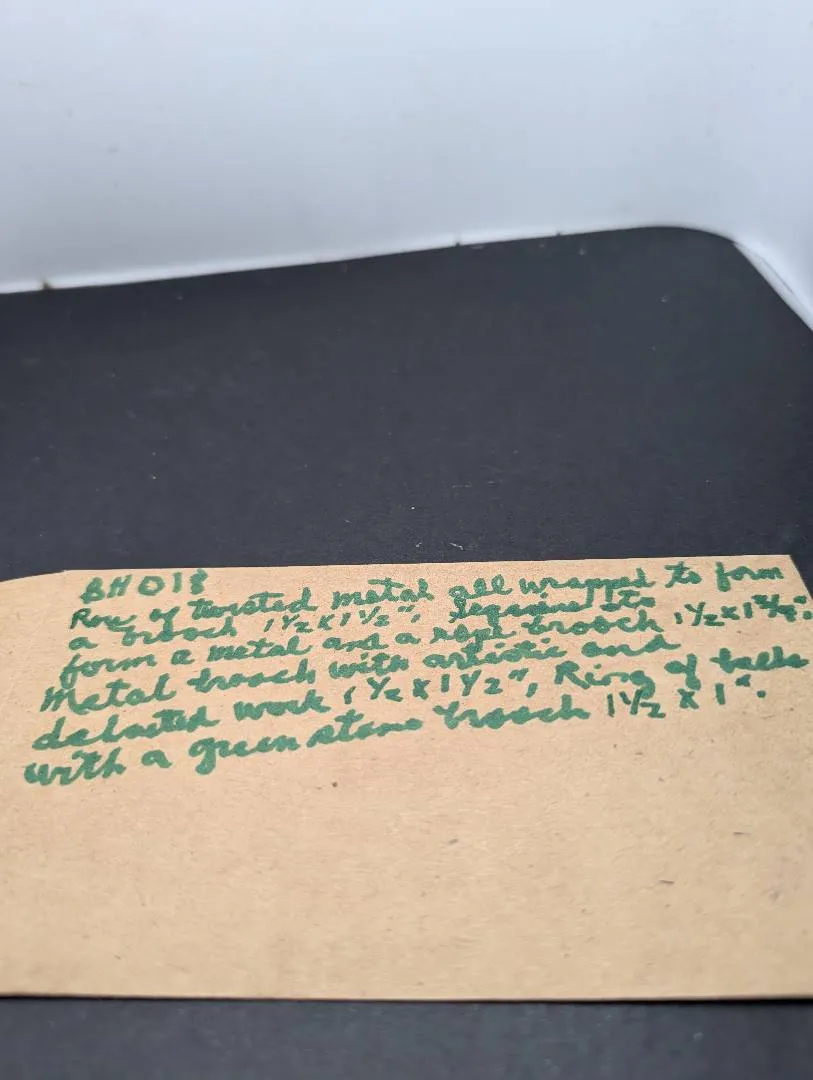 BH 018
Row of twisted metal all wrapped to form
a brooch 1 1/2 x 1 1/2",
form a metal and a brooch 1 1/2 x 1
metal brooch with artistic and
work 1 1/2 x 1 1/2", Ring of balls
with a green stone brooch 1 1/2 x 1".